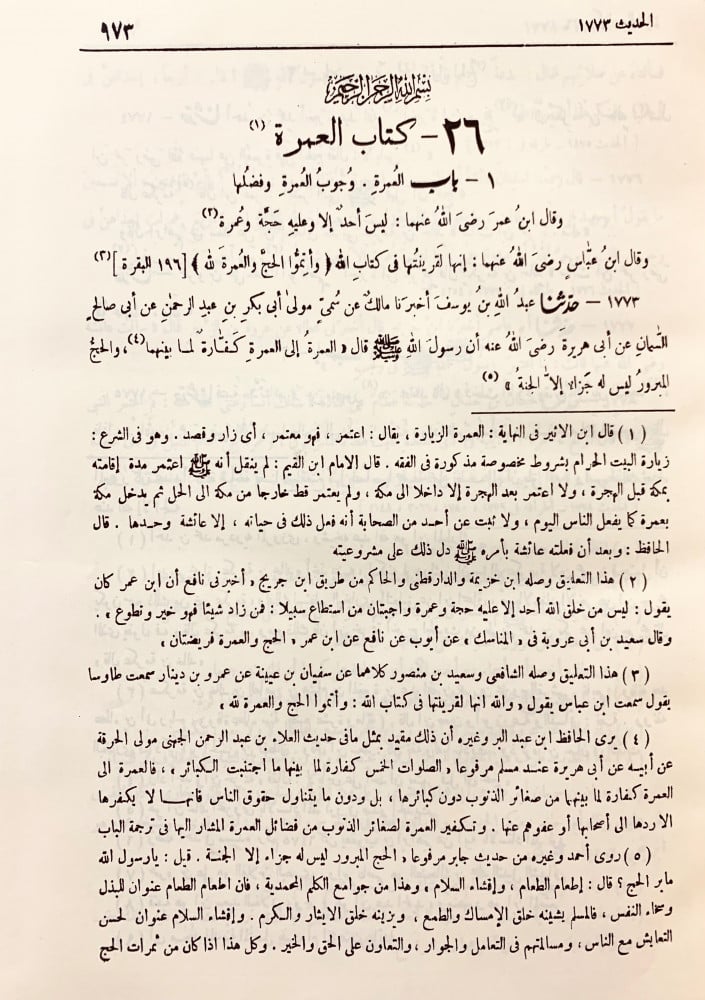 الحديث ١٧٧٣
٩٧٣
بسم الله الرحمن الرحيم
٢٦ - كتاب العمرة (١)
١ - باب العُمرةِ . وُجوبُ العُمرةِ وفضلُها
وقال ابنُ عمرَ رضىَ اللهُ عنهما : ليسَ أحدٌ إلا وعليهِ حَجَّة وعُمرة (٢)
وقال ابنُ عبّاسٍ رضىَ اللهُ عنهما : إنها لَقرينتُها فى كتابِ الله ﴿ وأتِموُّا الحجَّ والعُمرةَ لله ﴾ [ ١٩٦ البقرة ] (٣)
١٧٧٣ - حدّثنا عبدُ اللهِ بنُ يوسفَ أخبرَنا مالكٌ عن سُمَيٍّ مولىٰ أبي بكرِ بنِ عبدِ الرحمٰنِ عن أبى صالحٍ
السَّمانِ عن أبى هريرةَ رضىَ اللهُ عنه أن رسولَ اللهِ ﷺ قال « العمرةُ إلى العمرةِ كفَّارةٌ لما بينهما (٤) ، والحجُّ
المبرورُ ليس له جَزاء إلاَّ الجنةُ » (٥)
( ١ ) قال ابن الاثير فى النهاية : العمرة الزيارة ، يقال : اعتمر ، فهو معتمر ، أى زار وقصد . وهو فى الشرع :
زيارة البيت الحرام بشروط مخصوصة مذكورة فى الفقه . قال الامام ابن القيم : لم ينقل أنه ﷺ اعتمر مدة إقامته
بمكة قبل الهجرة ، ولا اعتمر بعد الهجرة إلا داخلا الى مكة ، ولم يعتمر قط خارجا من مكة الى الحل ثم يدخل مكة
بعمرة كما يفعل الناس اليوم ، ولا ثبت عن أحد من الصحابة أنه فعل ذلك فى حياته ، إلا عائشة وحدها . قال
الحافظ : وبعد أن فعلته عائشة بأمره ﷺ دل ذلك على مشروعيته
( ٢ ) هذا التعليق وصله ابن خزيمة والدارقطنى والحاكم من طريق ابن جريج « أخبرنى نافع أن ابن عمر كان
يقول : ليس من خلق الله أحد إلا عليه حجة وعمرة واجبتان من استطاع سبيلا : فمن زاد شيئا فهو خير وتطوع » .
وقال سعيد بن أبى عروبة فى « المناسك » عن أيوب عن نافع عن ابن عمر « الحج والعمرة فريضتان »
( ٣ ) هذا التعليق وصله الشافعى وسعيد بن منصور كلاهما عن سفيان بن عيينة عن عمرو بن دينار سمعت طاوسا
يقول سمعت ابن عباس يقول « والله انها لقرينتها فى كتاب الله : وأتموا الحج والعمرة لله »
( ٤ ) يرى الحافظ ابن عبد البر وغيره أن ذلك مقيد بمثل مافى حديث العلاء بن عبد الرحمن الجهنى مولى الحرقة
عن أبيه عن أبى هريرة عند مسلم مرفوعا « الصلوات الخمس كفارة لما بينها ما اجتنبت الكبائر » ، فالعمرة الى
العمرة كفارة لما بينهما من صغائر الذنوب دون كبائرها ، بل ودون ما يتناول حقوق الناس فانها لا يكفرها
الا ردها الى أصحابها أو عفوهم عنها . وتكفير العمرة لصغائر الذنوب من فضائل العمرة المشار اليها فى ترجمة الباب
( ٥ ) روى أحمد وغيره من حديث جابر مرفوعا « الحج المبرور ليس له جزاء إلا الجنة . قيل : يارسول الله
مابر الحج ؟ قال : إطعام الطعام ، وإفشاء السلام » وهذا من جوامع الكلم المحمدية ، فان اطعام الطعام عنوان للبذل
وسخاء النفس ، فالمسلم يشينه خلق الإمساك والطمع ، ويزينه خلق الايثار والكرم . وإفشاء السلام عنوان لحسن
التعايش مع الناس ، ومسالمتهم فى التعامل والجوار ، والتعاون على الحق والخير . وكل هذا اذا كان من ثمرات الحج